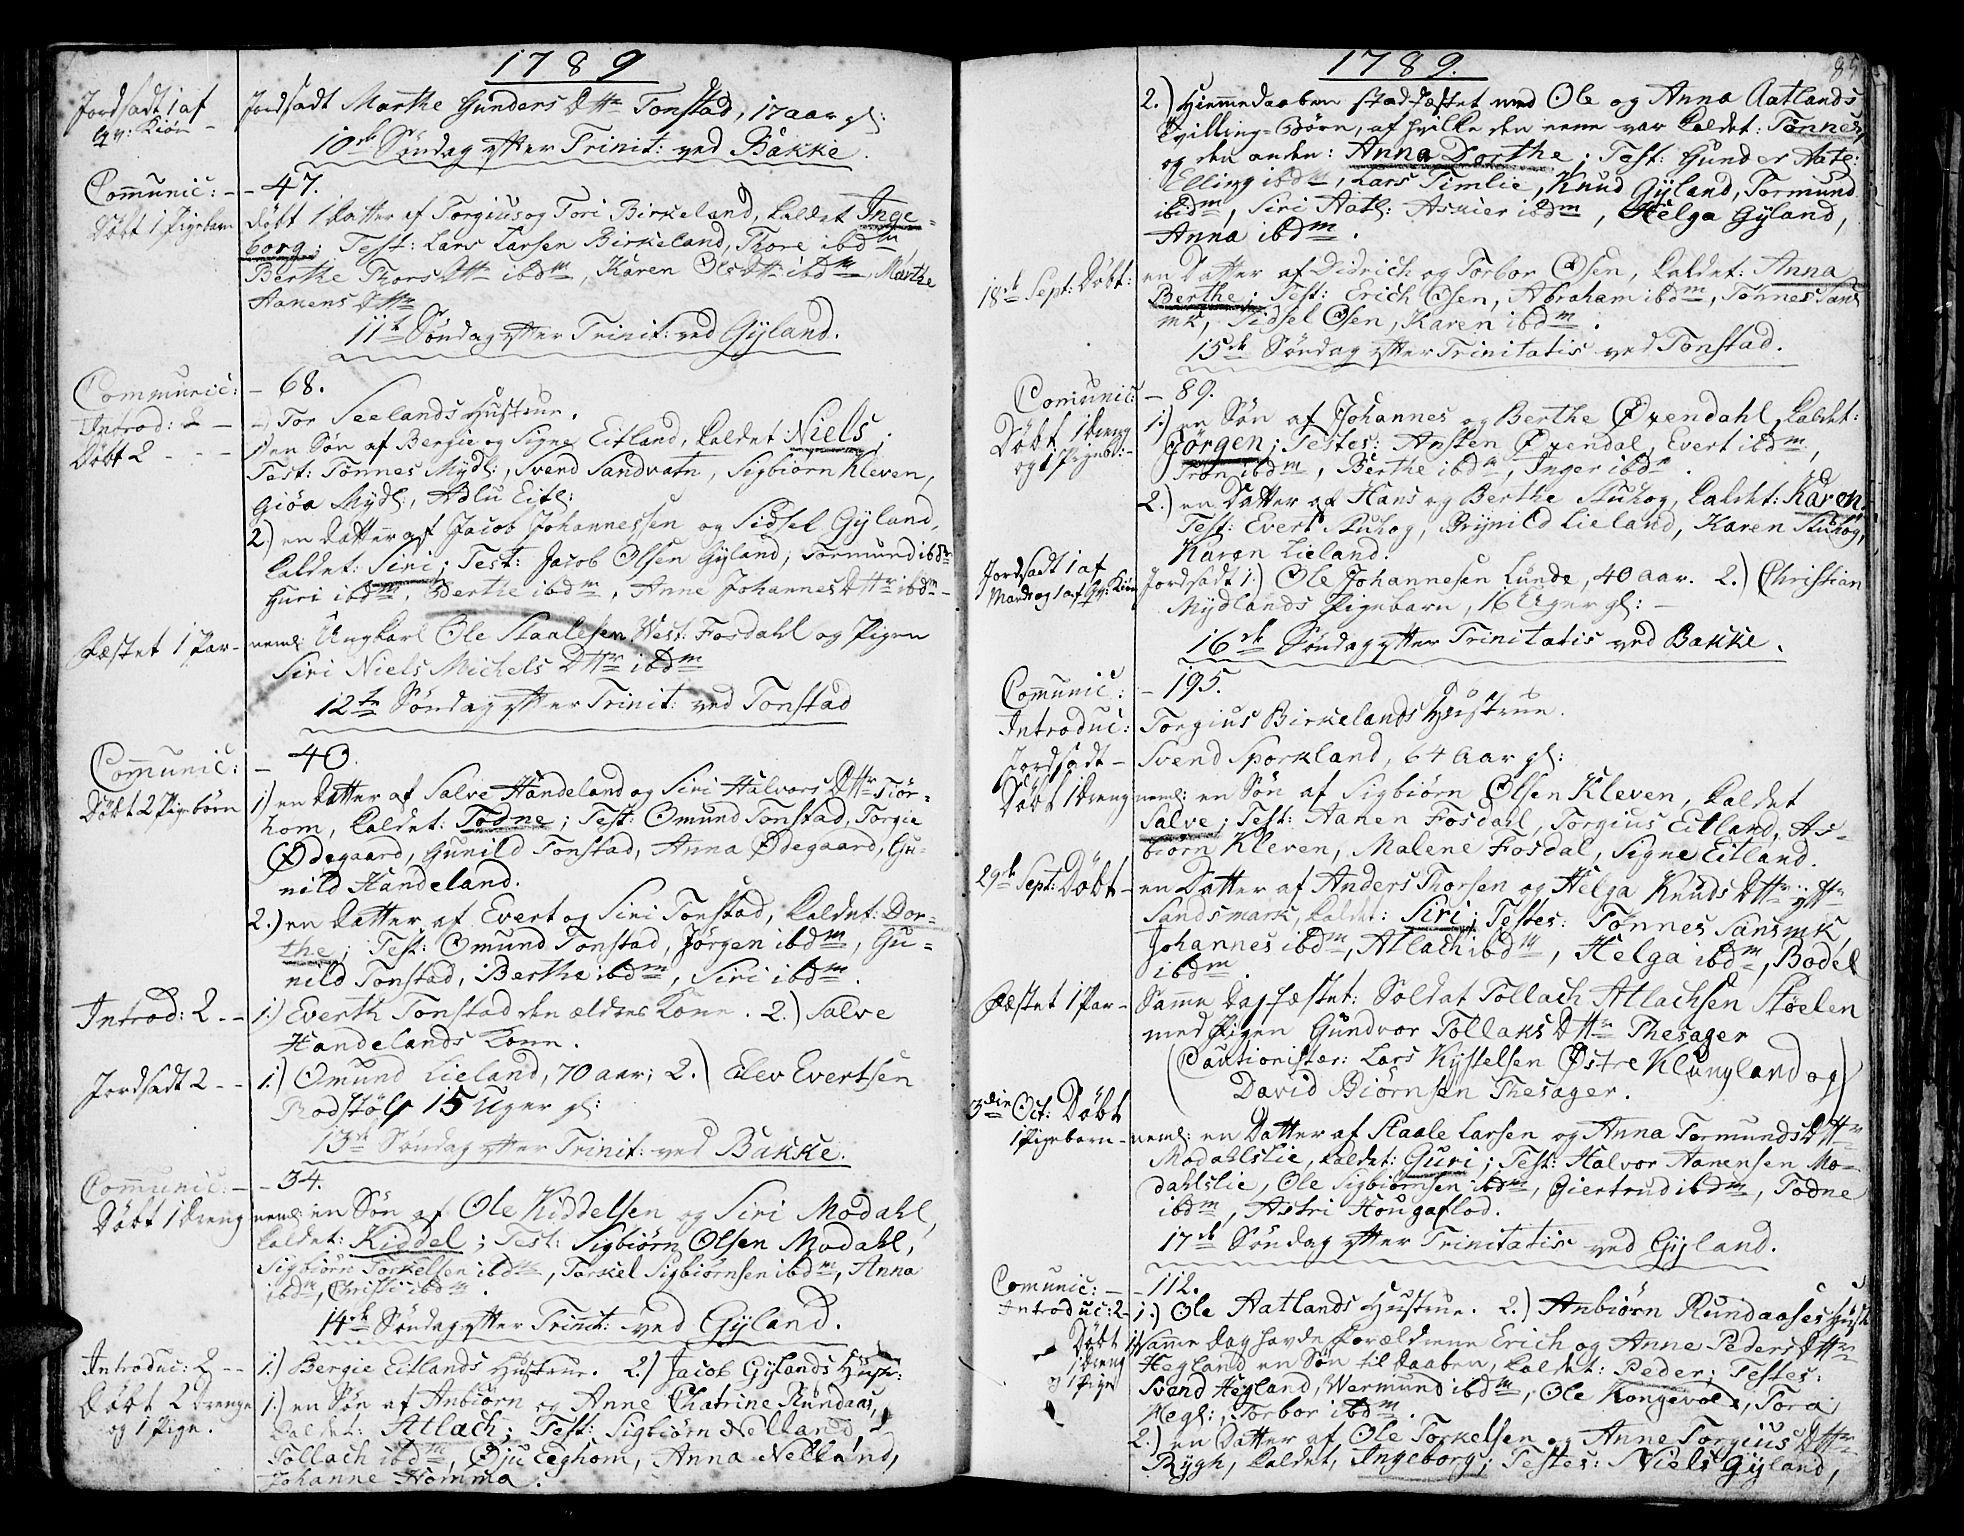 1789
Jordfadt 1 af Jordfadt Marthe Gunders Dttr Tonstad, 17 aar gl:
qv: Kiön -
10de Söndag efter Trinit: ved Bakke.
Communic: - - 47.
Döbt 1 Pigebarn Döbt 1 Datter af Torgius og Tori Birkeland, kaldet Inge-
borg; Test: Lars Larsen Birkeland, Thore ibdm
Berthe Thors Dttr ibdm, Karen Ols Dttr ibdm, Marthe
Aanens Dttr
11te Söndag efter Trinit: ved Gyland.
Communic: - 68.
Introd: 2 - Tor Seelands Hustrue.
Döbt 2 - - - 1) en Sön af Bergie og Signe Eitland, kaldet: Niels;
Test: Tönnes Mydl:, Svend Sandvatn, Sigbiörn Kleven,
Giöa Mydl:, Adlu Eitl:
2.) en Datter af Jacob Johannessen og Sidsel Gyland,
kaldet: Siri; Test: Jacob Olsen Gyland, Tormund ibdm
Guri ibdm, Berthe ibdm, Anne Johannes Dttr ibdm -
Fæstet 1 Par - neml: Ungkarl Ole Staalesen West: Fosdahl og Pigen
Siri Niels Michels Dttr ibdm
12te Söndag efter Trinit: ved Tonstad
Communic: - 40.
Döbt 2 Pigebörn 1) en Datter af Salve Handeland og Siri Halvors Dttr Tiör-
hom, kaldet: Todne; Test: Omund Tonstad, Torgie
Ödegaard, Gunild Tonstad, Anna Ödegaard, Gu-
nild Handeland.
2.) en Datter af Evert og Siri Tonstad, kaldet: Dor-
the; Test: Omund Tonstad, Jörgen ibdm, Gu-
nild Tonstad, Berthe ibdm, Siri ibdm.
Introd: 2 - - 1.) Everth Tonstad den ældres Kone. 2.) Salve
Handelands Kone.
Jordfadt 2 - - 1.) Omund Lieland, 70 aar; 2.) Elev Evertsen
Rodstöls 15 Uger gl:
13de Söndag efter Trinit: ved Bakke.
Communic: - - 34.
Döbt 1 dreng neml: en Sön af Ole Kiddelsen og Siri Modahl,
kaldet: Kiddel; Test: Sigbiörn Olsen Modahl,
Sigbiörn Torkelsen ibdm, Torkel Sigbiörnsen ibdm, Anna
ibdm, Christi ibdm.
14de Söndag efter Trinit: ved Gyland.
Introduc: 2 - - 1.) Bergie Eitlands Hustrue. 2.) Jacob Gylands Hustr:
Döbt 2 Drenge 1.) en Sön af Anbiörn og Anne Chatrine Rundaas,
og 1 Pige. kaldet: Atlach; Test: Sigbiörn Nelland,
Tollach ibdm, Öju Eeghom, Anna Nelland,
Johanne Homma.
1789.
85
2.) Hiemmedaaben stadfæstet med Ole og Anna Aatlands
Tvilling-Börn, af hvilke den eene var kaldet: Tönnes,
og den anden: Anna Dorthe; Test: Gunder Aatl:
Elling ibdm, Lars Timlie, Knud Gyland, Tormund
ibdm, Siri Aatl: Asmier ibdm, Helga Gyland,
Anna ibdm.
18de Sept: Döbt: en Datter af Didrich og Torbor Osen, kaldet: Anna
Berthe; Test: Erich Osen, Abraham ibdm, Tönnes Sans
mk, Sidsel Osen, Karen ibdm.
15de Söndag efter Trinitatis ved Tonstad.
Comunic: - 89.
Döbt 1 dreng 1.) en Sön af Johannes og Berthe Öxendahl, kaldet:
og 1 Pigeb: - Jörgen; Testes: Ansten Öxendal, Evert ibdm,
Tron ibdm, Berthe ibdm, Inger ibdm.
2.) en Datter af Hans og Berthe Stuhog, kaldet: Karen.
Test: Evert Stuhog, Brynild Lieland, Karen Stuhog,
Karen Lieland.
Jordfadt 1 af Jordfadt 1.) Ole Johannesen Lunde, 40 aar. 2.) Christian
Mands og 1 af Qv: Kiön Mydlands Pigebarn, 16 Uger gl: -
16de Söndag efter Trinitatis ved Bakke.
Comunic: - 195.
Introduc: Torgius Birkelands Hustrue.
Jordfadt - Svend Sporkland, 64 Aar gl:
Döbt 1 dreng neml: en Sön af Sigbiörn Olsen Kleven, kaldet
Salve; Test: Aanen Fosdal, Torgius Eitland, As-
biörn Kleven, Malene Fosdal, Signe Eitland.
29de Sept: Döbt - en Datter af Anders Thorsen og Helga Knuds Dttr
Sandsmark, kaldet: Siri; Testes: Tönnes Sansmk,
Johannes ibdm, Atlach ibdm, Helga ibdm, Bodel
ibdm.
Fæstet 1 Par - Samme Dag fæstet: Soldat Tollach Atlachsen Stöelen
med Pigen Gundvor Tollaks Dttr Thesager
(Cautionister: Lars Kystelsen Östre Klungland og
David Biörnsen Thesager.)
3die Oct: Döbt
1 Pigebarn - neml: en Datter af Staale Larsen og Anna Tormunds Dttr
Modahlslie, kaldet: Guri; Test: Halvor Aanensen Mo-
dahlslie, Ole Sigbiörnsen ibdm, Giertrud ibdm, Todne
ibdm, Astri Hougaflod.
17de Söndag efter Trinitatis ved Gyland.
Comunic: - - 112.
Introduc: 2 - 1.) Ole Aatlands Hustrue. 2.) Anbiörn Rundaases Hust:
Döbt 1) Samme Dag havde Forældrene Erich og Anne Peders Dttr
1 dreng Hegland en Sön til Daaben, kaldet: Peder; Testes:
og 1 Pige Svend Hegland, Wermund ibdm, Ole Kongevold, Tora
Hegl:, Torbor ibdm.
2.) en Datter af Ole Torkelsen og Anne Torgius Dttr
Rygh, kaldet, Ingeborg; Testes: Niels Gyland,